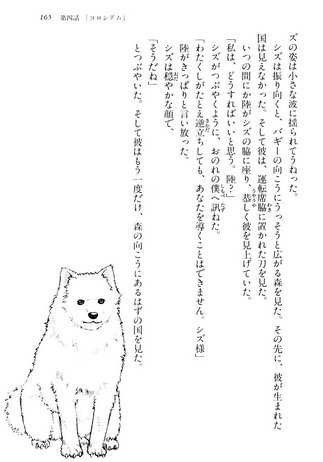 163　第四話「コロシアム」
ズの姿は小さな波に揺られてうねった。
シズは振り向くと、バギーの向こうにうっそうと広がる森を見た。その先に、彼が生まれた
国は見えなかった。そして彼は、運転席脇に置かれた刀を見た。
いつの間にか陸がシズの脇に座り、恭しく彼を見上げていた。
「私は、どうすればいいと思う。陸？」
シズがつぶやくように、おのれの僕へ訊ねた。
「わたくしがたとえ逆立ちしても、あなたを導くことはできません。シズ様」
陸がきっぱりと言い放った。
シズは穏やかな顔で、
「そうだね」
とつぶやいた。そして彼はもう一度だけ、森の向こうにあるはずの国を見た。